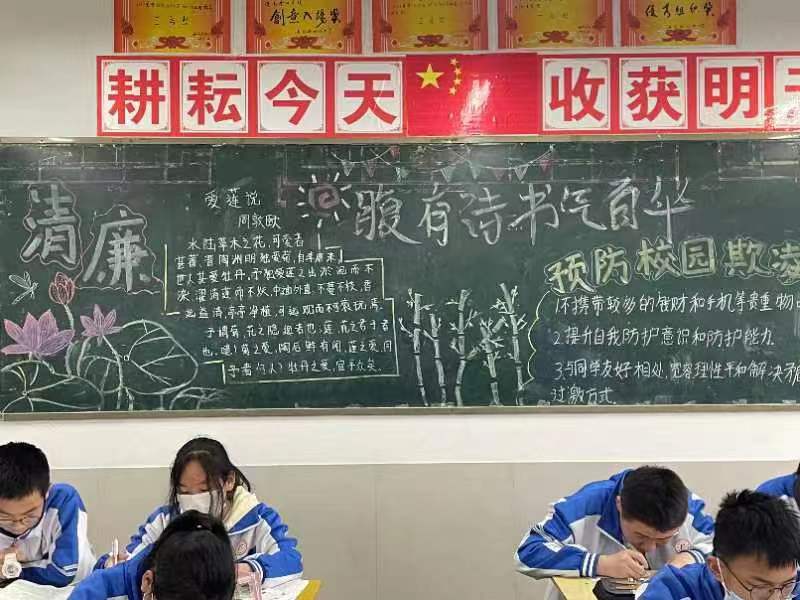 三（2）班
创意入场奖
三（2）班
三（2）班
优秀组织奖
耕耘今天 收获明天
清廉
爱莲说
周敦颐
水陆草木之花，可爱者
甚蕃。晋陶渊明独爱菊，自李唐来，
世人甚爱牡丹。予独爱莲之出淤泥而不
染，濯清涟而不妖，中通外直，不蔓不枝，香
远益清，亭亭净植，可远观而不可亵玩焉。
予谓菊，花之隐逸者也；莲，花之君子者
也。噫！菊之爱，陶后鲜有闻；莲之爱，同
予者何人？牡丹之爱，宜乎众矣。
腹有诗书气自华
预防校园欺凌
1.不携带较多的钱财和手机等贵重物
2.提升自我防护意识和防护能力.
3.与同学友好相处,宽容理性平和解决矛盾
过激方式.